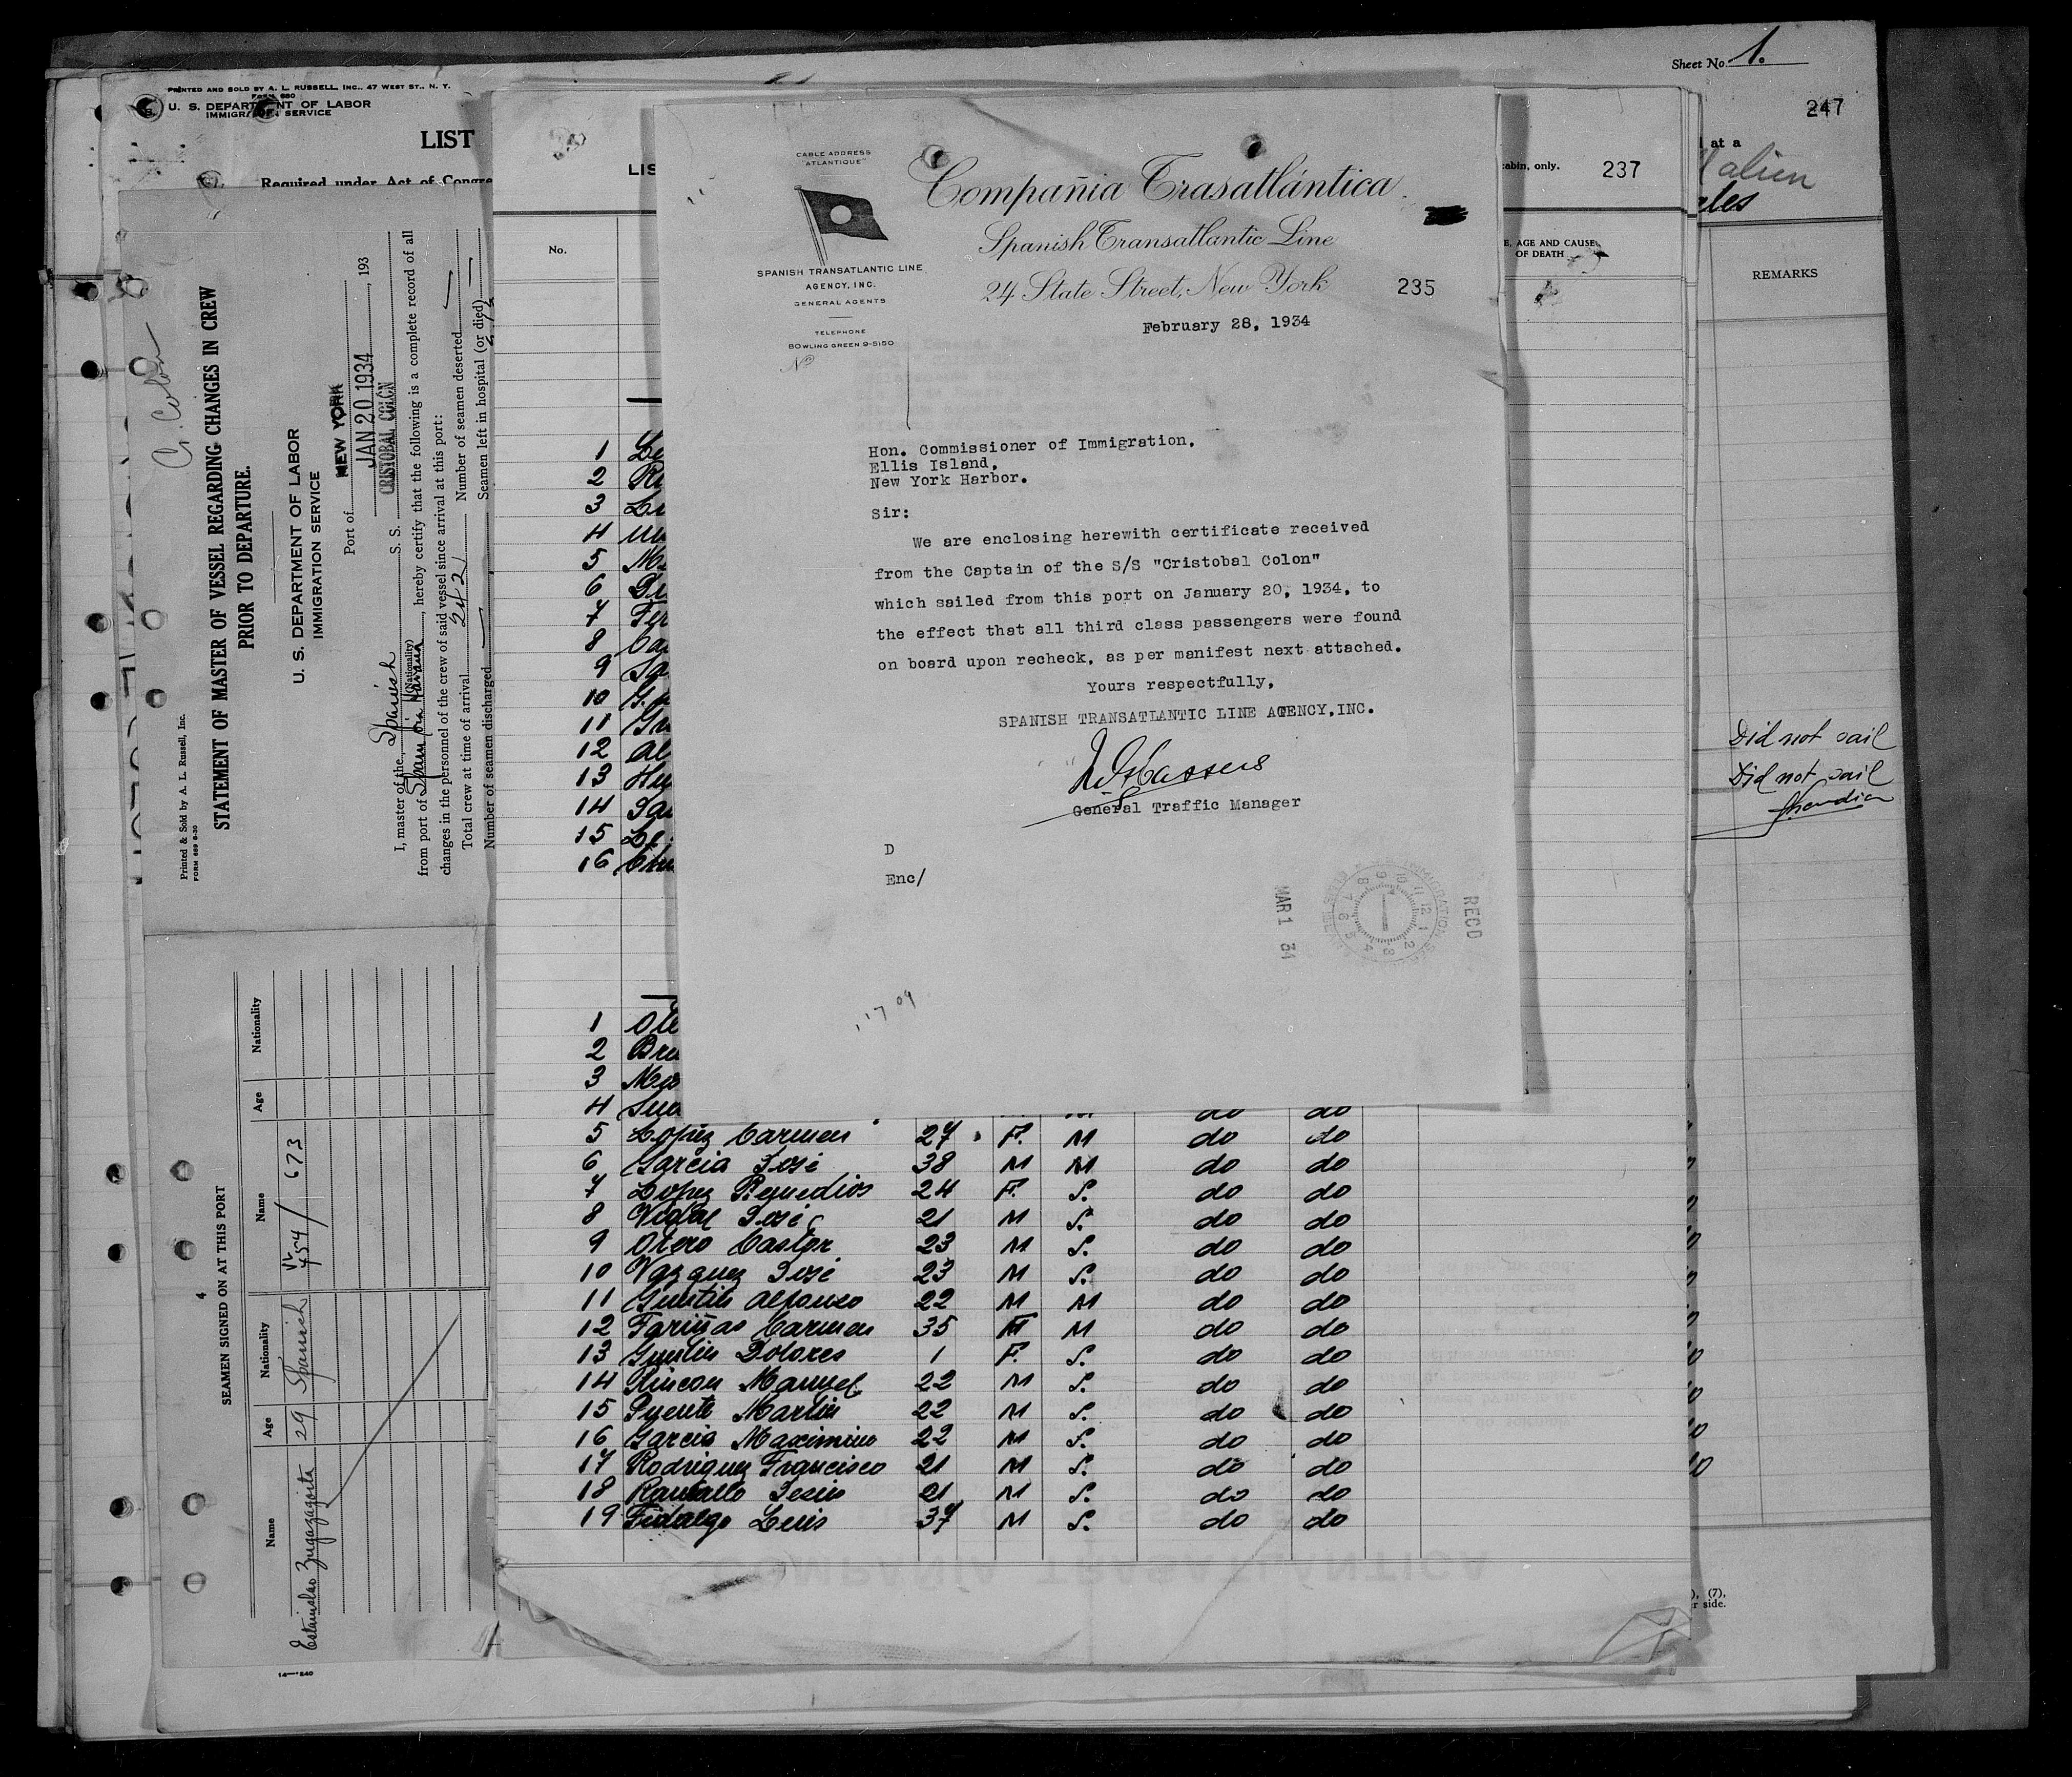 Sheet No. 1.
247
PRINTED AND SOLD BY A. L. RUSSELL, INC., 47 WEST ST., N. Y.
Form 680
U. S. DEPARTMENT OF LABOR
IMMIGRATION SERVICE
LIST
Required under Act of Congre
at a
alien
ales
REMARKS
Did not sail
Did not sail
), (7),
r side.
LIS
cabin, only.
237
No.
E, AGE AND CAUSE
OF DEATH
1 Lo
2
3
4
5
6
7 Fer
8
9
10
11
12 Al
13
14
15
16
1 Ote
2
3
4
do do
5 Lopez Carmen 27 F. M do do
6 Garcia José 38 M M do do
7 Lopez Remedios 24 F. S. do do
8 Vidal José 21 M S. do do
9 Otero Castor 23 M S. do do
10 Vazquez José 23 M S. do do
11 Alfonso 22 M M do do
12 Fariñas Carmen 35 F M do do
13 Dolores 1 F. S. do do
14 Rincon Manuel 22 M S. do do
15 Puente Martin 22 M S. do do
16 Garcia Maximino 22 M S. do do
17 Rodriguez Francisco 21 M S. do do
18 Jesus 21 M S. do do
19 Fidalgo Luis 37 M S. do do
CABLE ADDRESS
"ATLANTIQUE"
Compañia Trasatlántica
Spanish Transatlantic Line
24 State Street, New York
SPANISH TRANSATLANTIC LINE
AGENCY, INC.
GENERAL AGENTS
TELEPHONE
BOWLING GREEN 9-5150
No
235
February 28, 1934
Hon. Commissioner of Immigration.
Ellis Island,
New York Harbor.
Sir:
We are enclosing herewith certificate received
from the Captain of the S/S "Cristobal Colon"
which sailed from this port on January 20, 1934, to
the effect that all third class passengers were found
on board upon recheck, as per manifest next attached.
Yours respectfully,
SPANISH TRANSATLANTIC LINE AGENCY,INC.
General Traffic Manager
D
Enc/
REC'D
MAR 1 34
IMMIGRATION
Printed & Sold by A. L. Russell, Inc.
FORM 689 6-30
C. Colon
STATEMENT OF MASTER OF VESSEL REGARDING CHANGES IN CREW
PRIOR TO DEPARTURE.
U. S. DEPARTMENT OF LABOR
IMMIGRATION SERVICE
Port of NEW YORK
JAN 20 1934, 193
I, master of the Spanish S. S. CRISTOBAL COLON
(Nationality)
from port of Spain via Havana, hereby certify that the following is a complete record of all
changes in the personnel of the crew of said vessel since arrival at this port:
Total crew at time of arrival 242 Number of seamen deserted —
Number of seamen discharged — Seamen left in hospital (or died) —
4
SEAMEN SIGNED ON AT THIS PORT
Name Age Nationality Name Age Nationality
Estanislao Zugazagoitia 29 Spanish VL 454/673
14—1240
COMPAÑÍA TRASATLÁNTICA